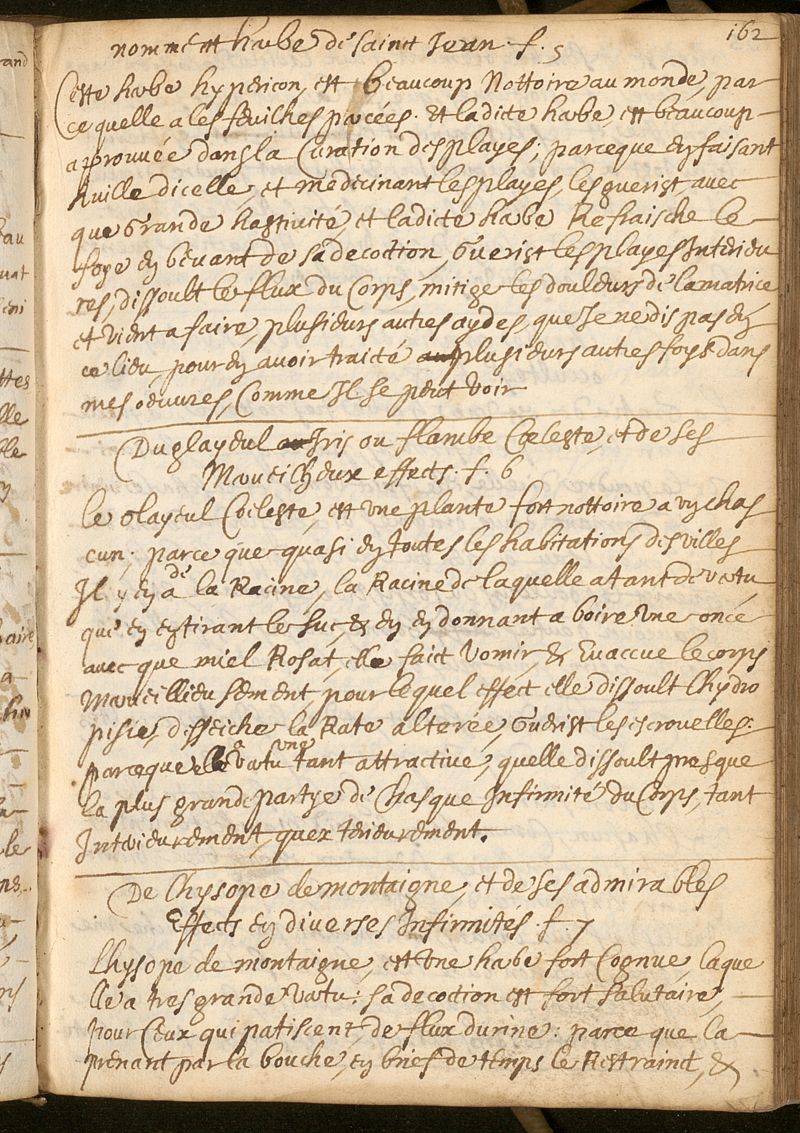 162
nomment herbe de Sainct Jean. f. 5
Ceste herbe hypericon, est beaucoup Nottoire au monde, par
ce quelle a les feuilhes parcées. Et ladicte herbe, est beaucoup
approuvée dans la Curation des playes; parceque en faisant
huille dicelle, et medicinant les playes, les guerist avec
que Grande hastivité, et ladicte herbe Refraische le
foye en beuvant de sa decoction, Guerist les playes Interieu
res, dissoult le flux du Corps, mitige les douleurs de la matrice
et vient a faire, plusieurs autres aydes, que Je ne dis pas en
ce lieu, pour en avoir traicté plusieurs autres foys dans
mes oeuvres, Comme Il se peut voir
Du glayeul Iris ou flambe Coeleste, et de ses
Merveilheux effects. f. 6
le Glayeul Coeleste, est une plante fort nottoire a un chas
cun; parce que quasi en toutes les habitations des villes
Il y en a de la Racine, la Racine de laquelle a tant de vertu
que en entirant le suc, & en en donnant a boire une once
avec que miel Rosat, elle faict vomir, & Evacue le corps
Merveillieusement, pour lequel effect elle dissoult lhydro
pisie, desseiche la Rate alterée, Guerist les escrouelles:
parceque a vertu une tant attractive, quelle dissoult presque
la plus grande partye de chasque Infirmité du Corps, tant
Interieurement, quexterieurement.
De lhysope de montaigne, et de ses admirables
Effects en diverses Infirmités f. 7
Lhysope de montaigne, est une herbe fort Cognue, laque
lle a tres grande vertu: sa decoction est fort salutaire,
pour Ceux qui patissent de flux durine: parce que la
prenant par la bouche, en brief de temps le Restrainct, &